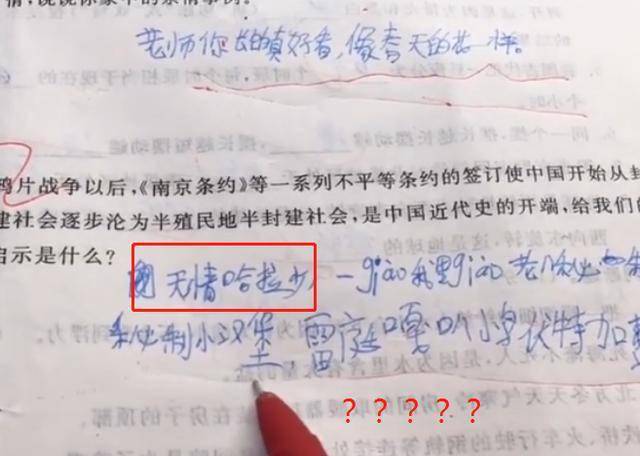 情，说说你家中的亲情事例。
老师你长的真好看，像春天的花一样。
鸦片战争以后，《南京条约》等一系列不平等条约的签订使中国开始从封
建社会逐步沦为半殖民地半封建社会，是中国近代史的开端，给我们的
启示是什么？
无情哈拉少 一giao我里giao 老八
秘制小汉堡 雷霆嘎 伏特加
？？？？？